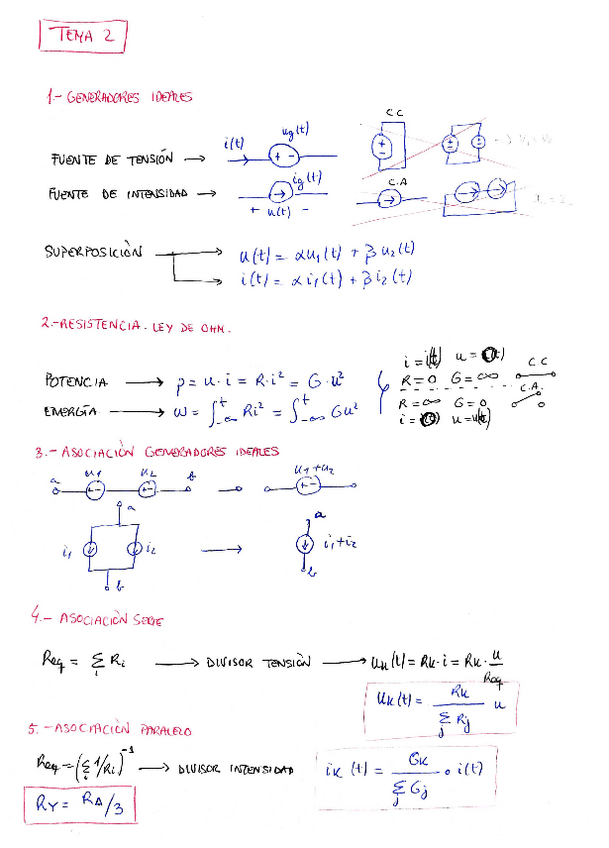 TEMA 2
1.- GENERADORES IDEALES
CC
i(t) ug(t)
+ -
FUENTE DE TENSIÓN →
C.A
FUENTE DE INTENSIDAD → ig(t)
+ u(t) -
SUPERPOSICIÓN → u(t) = αu₁(t) + βu₂(t)
→ i(t) = αi₁(t) + βi₂(t)
2.- RESISTENCIA. LEY DE OHM.
i = i(t) u = 0(t) C C
POTENCIA → p = u · i = R·i² = G·u² R=0 G=∞
C.A.
ENERGÍA → ω = ∫₋∞ᵗ Ri² = ∫₋∞ᵗ Gu² R=∞ G=0
i = 0(t) u = u(t)
3.- ASOCIACIÓN GENERADORES IDEALES
a u1 u2 b u1+u2
+- +- +-
a a
i₁ i₂ → i₁+i₂
b b
4.- ASOCIACIÓN SERIE
Req = Σi Ri → DIVISOR TENSIÓN → uk(t) = Rk·i = Rk · u/Req
uk(t) = Rk/Σj Rj u
5.- ASOCIACIÓN PARALELO
Req = (Σi 1/Ri)⁻¹ → DIVISOR INTENSIDAD ik(t) = Gk/Σj Gj · i(t)
RY = RΔ/3